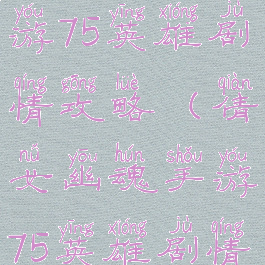 yóu yīng xióng jù
游75英雄剧
qíng gōng lüè qiàn
情攻略(倩
nǚ yōu hún shǒu yóu
女幽魂手游
yīng xióng jù qíng
75英雄剧情